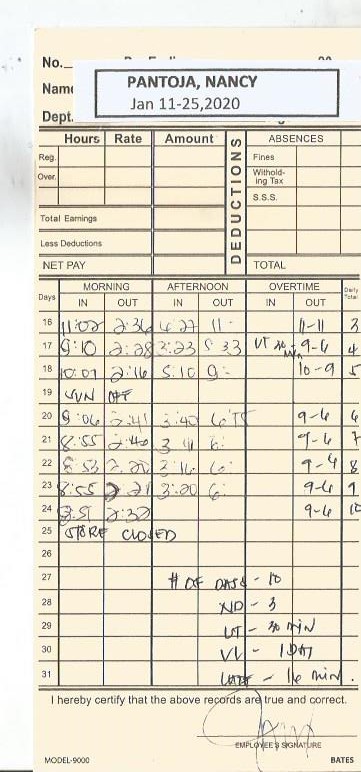 No.
PANTOJA, NANCY
Jan 11-25,2020
Name
Dept.
Hours Rate Amount DEDUCTIONS ABSENCES
Reg. Fines
Over. Withhold-
ing Tax
S.S.S.
Total Earnings
Less Deductions
NET PAY TOTAL
Days MORNING AFTERNOON OVERTIME Daily Total
IN OUT IN OUT IN OUT
16 11:02 2:36 4:27 11- 11-11 3
17 9:10 2:28 3:23 5 33 UT 30 min 9-6 4
18 10:01 2:16 5:10 9- 10-9 5
19 SUN OFF
20 9:06 2:41 3:40 9-6 6
21 8:55 2:40 3 41 6: 9-6 7
22 8:53 2:20 3:16 6: 9-6 8
23 8:55 2 21 3:20 6: 9-6 9
24 8:51 2:32 9-6 10
25 STORE CLOSED
26
27 # OF DAYS - 10
28 ND - 3
29 UT - 30 MIN
30 VL - 1 DAY
31 LATE - 16 min.
I hereby certify that the above records are true and correct.
EMPLOYEE'S SIGNATURE
MODEL-9000 BATES